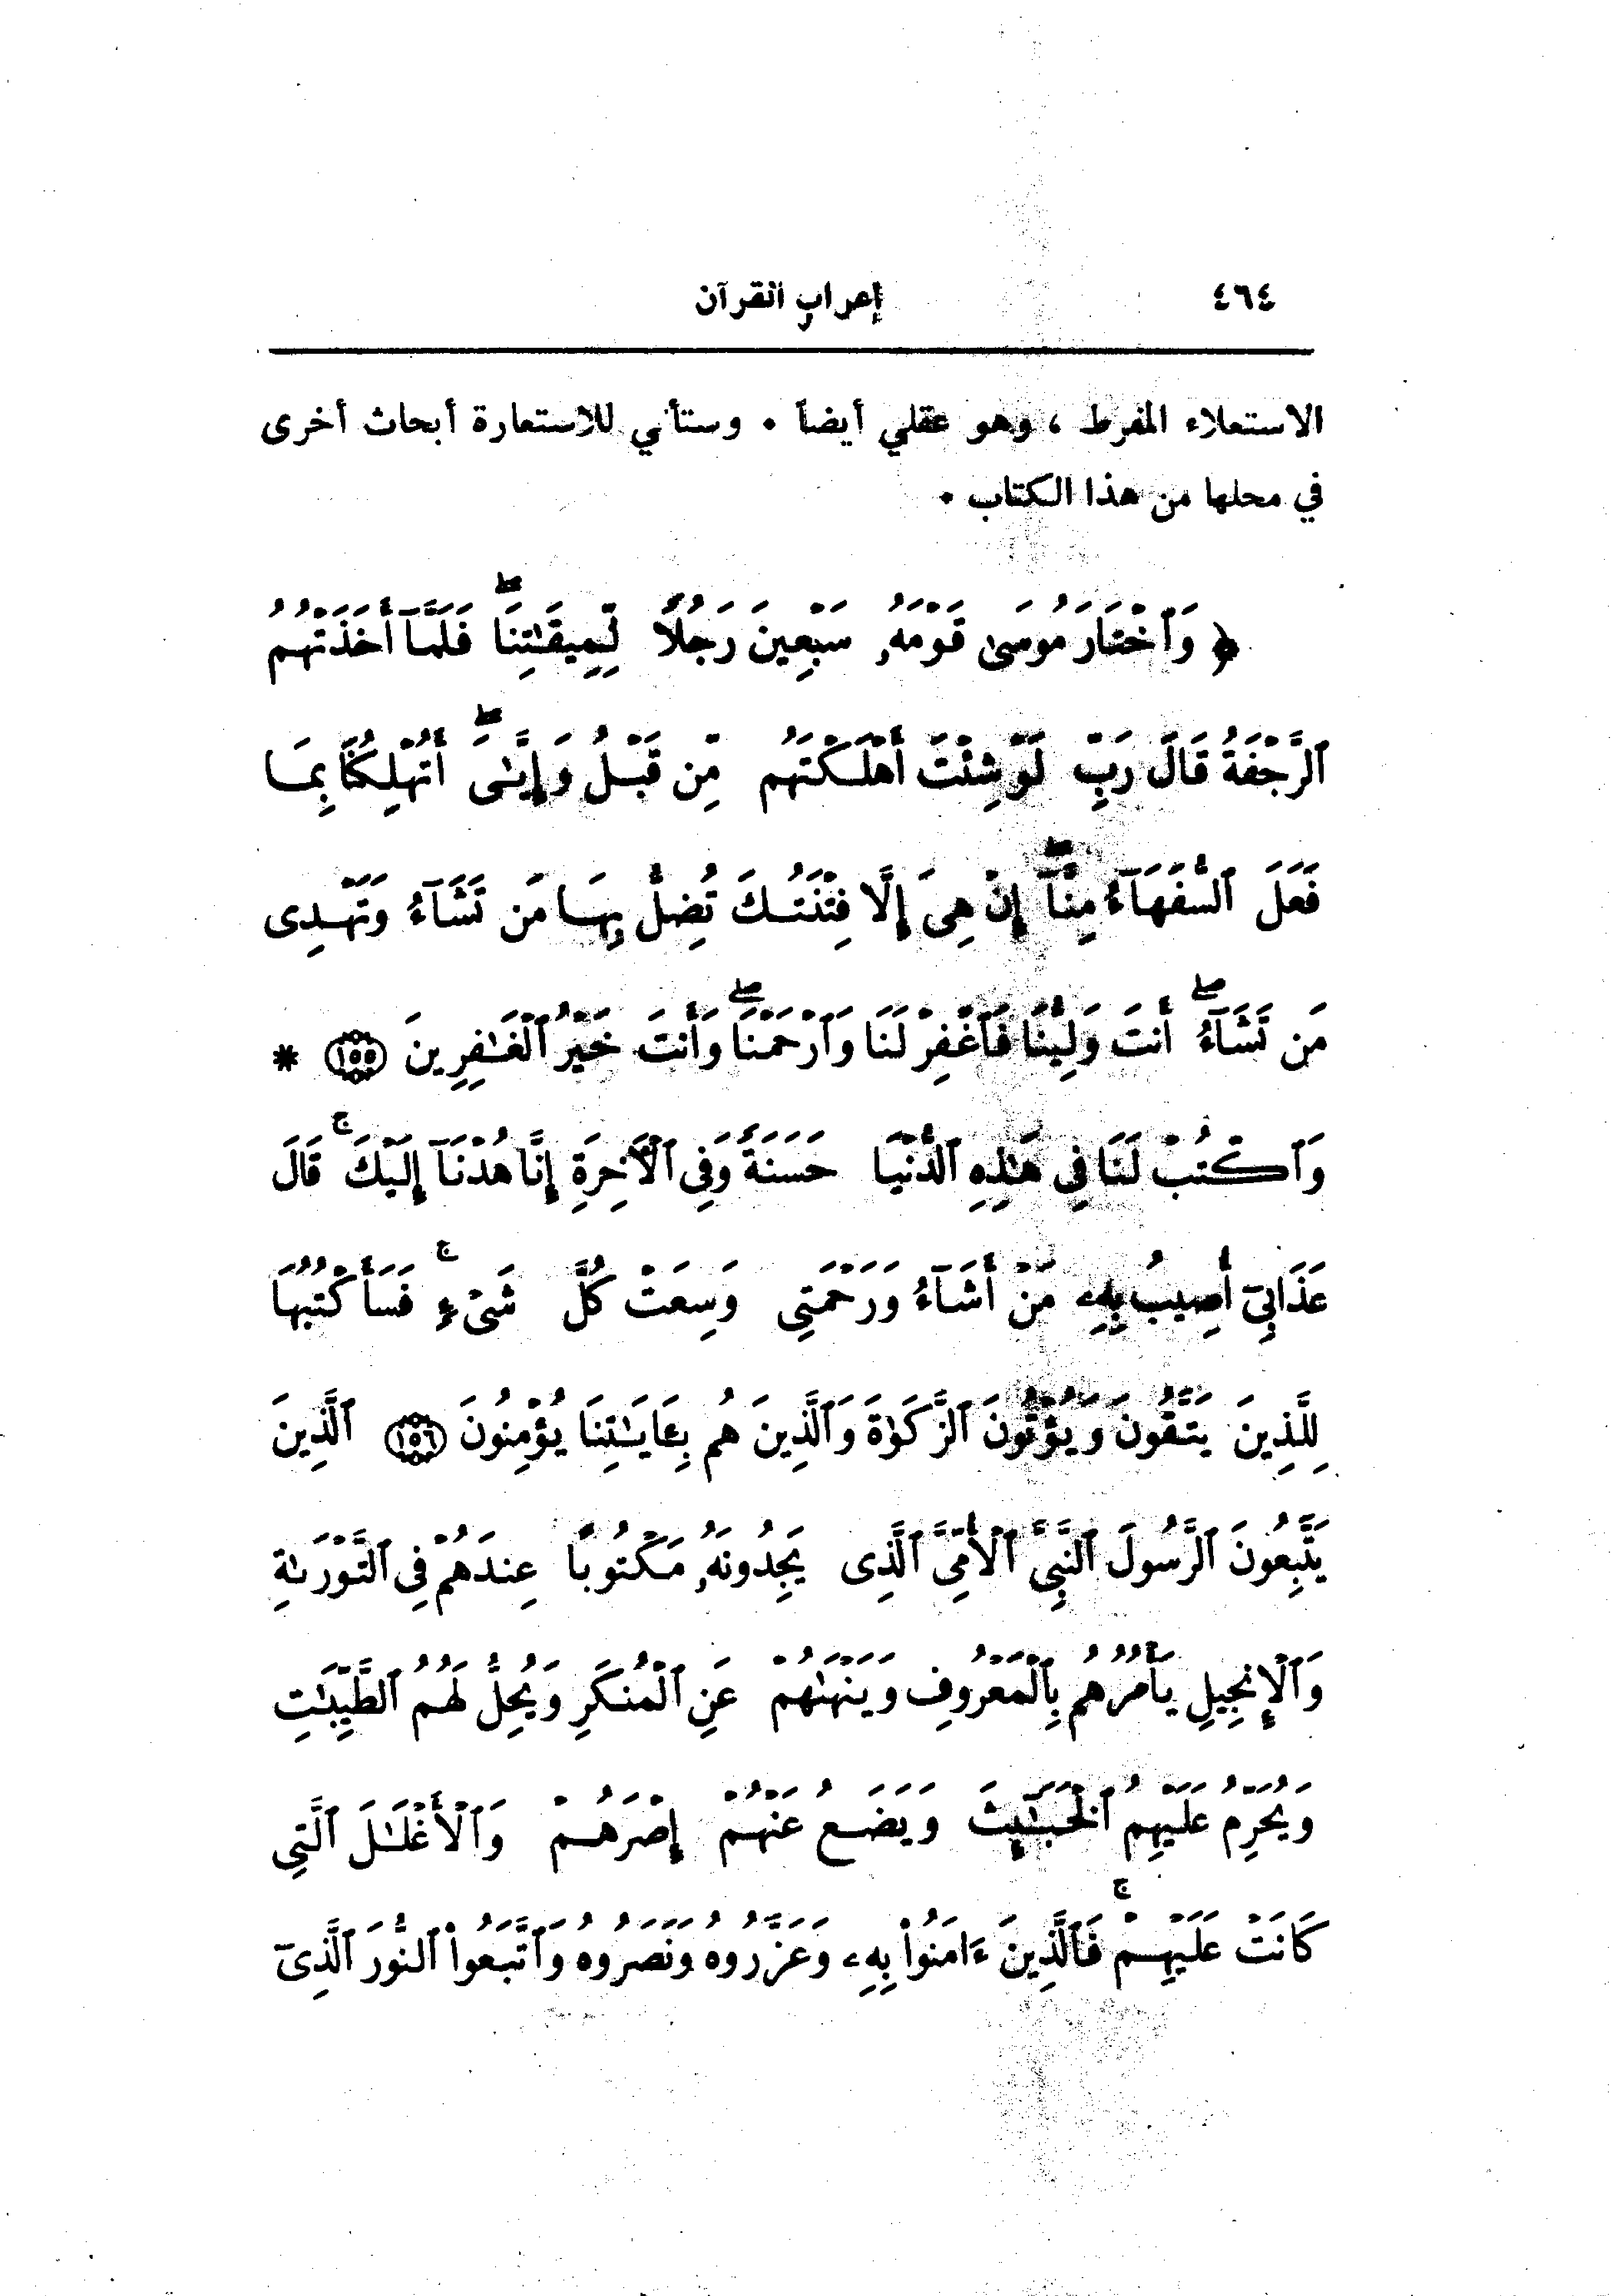 ٤٦٤
إعراب القرآن
الاستعلاء المفرط ، وهو عقلي أيضاً . وستأتي للاستعارة أبحاث أخرى
في محلها من هذا الكتاب .
﴿ وَٱخْتَارَ مُوسَىٰ قَوْمَهُۥ سَبْعِينَ رَجُلًا لِّمِيقَٰتِنَا ۖ فَلَمَّآ أَخَذَتْهُمُ
ٱلرَّجْفَةُ قَالَ رَبِّ لَوْ شِئْتَ أَهْلَكْتَهُم مِّن قَبْلُ وَإِيَّٰىَ ۖ أَتُهْلِكُنَا بِمَا
فَعَلَ ٱلسُّفَهَآءُ مِنَّآ ۖ إِنْ هِىَ إِلَّا فِتْنَتُكَ تُضِلُّ بِهَا مَن تَشَآءُ وَتَهْدِى
مَن تَشَآءُ ۖ أَنتَ وَلِيُّنَا فَٱغْفِرْ لَنَا وَٱرْحَمْنَا ۖ وَأَنتَ خَيْرُ ٱلْغَٰفِرِينَ ١٥٥ *
وَٱكْتُبْ لَنَا فِى هَٰذِهِ ٱلدُّنْيَا حَسَنَةً وَفِى ٱلْأَخِرَةِ إِنَّا هُدْنَآ إِلَيْكَ ۚ قَالَ
عَذَابِىٓ أُصِيبُ بِهِۦ مَنْ أَشَآءُ وَرَحْمَتِى وَسِعَتْ كُلَّ شَىْءٍ ۚ فَسَأَكْتُبُهَا
لِلَّذِينَ يَتَّقُونَ وَيُؤْتُونَ ٱلزَّكَوٰةَ وَٱلَّذِينَ هُم بِـَٔايَٰتِنَا يُؤْمِنُونَ ١٥٦ ٱلَّذِينَ
يَتَّبِعُونَ ٱلرَّسُولَ ٱلنَّبِىَّ ٱلْأُمِّىَّ ٱلَّذِى يَجِدُونَهُۥ مَكْتُوبًا عِندَهُمْ فِى ٱلتَّوْرَىٰةِ
وَٱلْإِنجِيلِ يَأْمُرُهُم بِٱلْمَعْرُوفِ وَيَنْهَىٰهُمْ عَنِ ٱلْمُنكَرِ وَيُحِلُّ لَهُمُ ٱلطَّيِّبَٰتِ
وَيُحَرِّمُ عَلَيْهِمُ ٱلْخَبَٰٓئِثَ وَيَضَعُ عَنْهُمْ إِصْرَهُمْ وَٱلْأَغْلَٰلَ ٱلَّتِى
كَانَتْ عَلَيْهِمْ ۚ فَٱلَّذِينَ ءَامَنُوا۟ بِهِۦ وَعَزَّرُوهُ وَنَصَرُوهُ وَٱتَّبَعُوا۟ ٱلنُّورَ ٱلَّذِىٓ